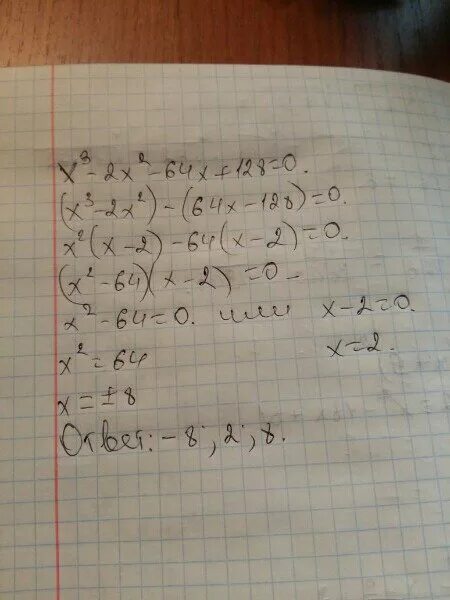 x³ - 2x² - 64x + 128 = 0.
(x³ - 2x²) - (64x - 128) = 0.
x²(x - 2) - 64(x - 2) = 0.
(x² - 64)(x - 2) = 0
x² - 64 = 0. или x - 2 = 0.
x² = 64 x = 2.
x = ±8
Ответ: -8; 2; 8.